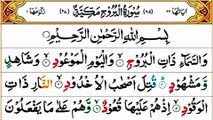 سُورَةُ الْبُرُوْجِ مَكِّيَّةٌ
بِسْمِ اللهِ الرَّحْمٰنِ الرَّحِيْمِ
وَالسَّمَآءِ ذَاتِ الْبُرُوْجِ ۙ وَالْيَوْمِ الْمَوْعُوْدِ ۙ وَشَاهِدٍ
وَّمَشْهُوْدٍ ؕ قُتِلَ اَصْحٰبُ الْاُخْدُوْدِ ۙ النَّارِ ذَاتِ
الْوَقُوْدِ ۙ اِذْ هُمْ عَلَيْهَا قُعُوْدٌ ۙ وَّهُمْ عَلٰى مَا يَفْعَلُوْنَ